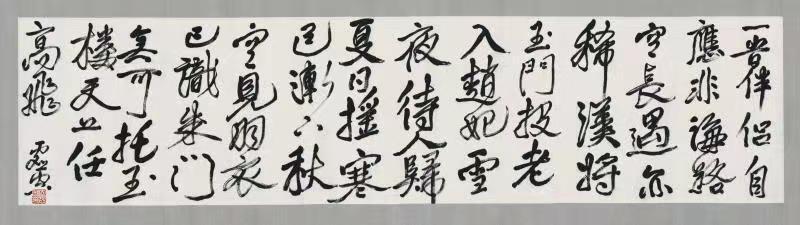 一昔伴侶自
應非海路
空長遇尔
稀漢將
玉門投老
入趙妃雪
夜待人歸
夏日搖寒
色漸秋
空見羽衣
已識朱門
無可托玉
樓天上任
高飛